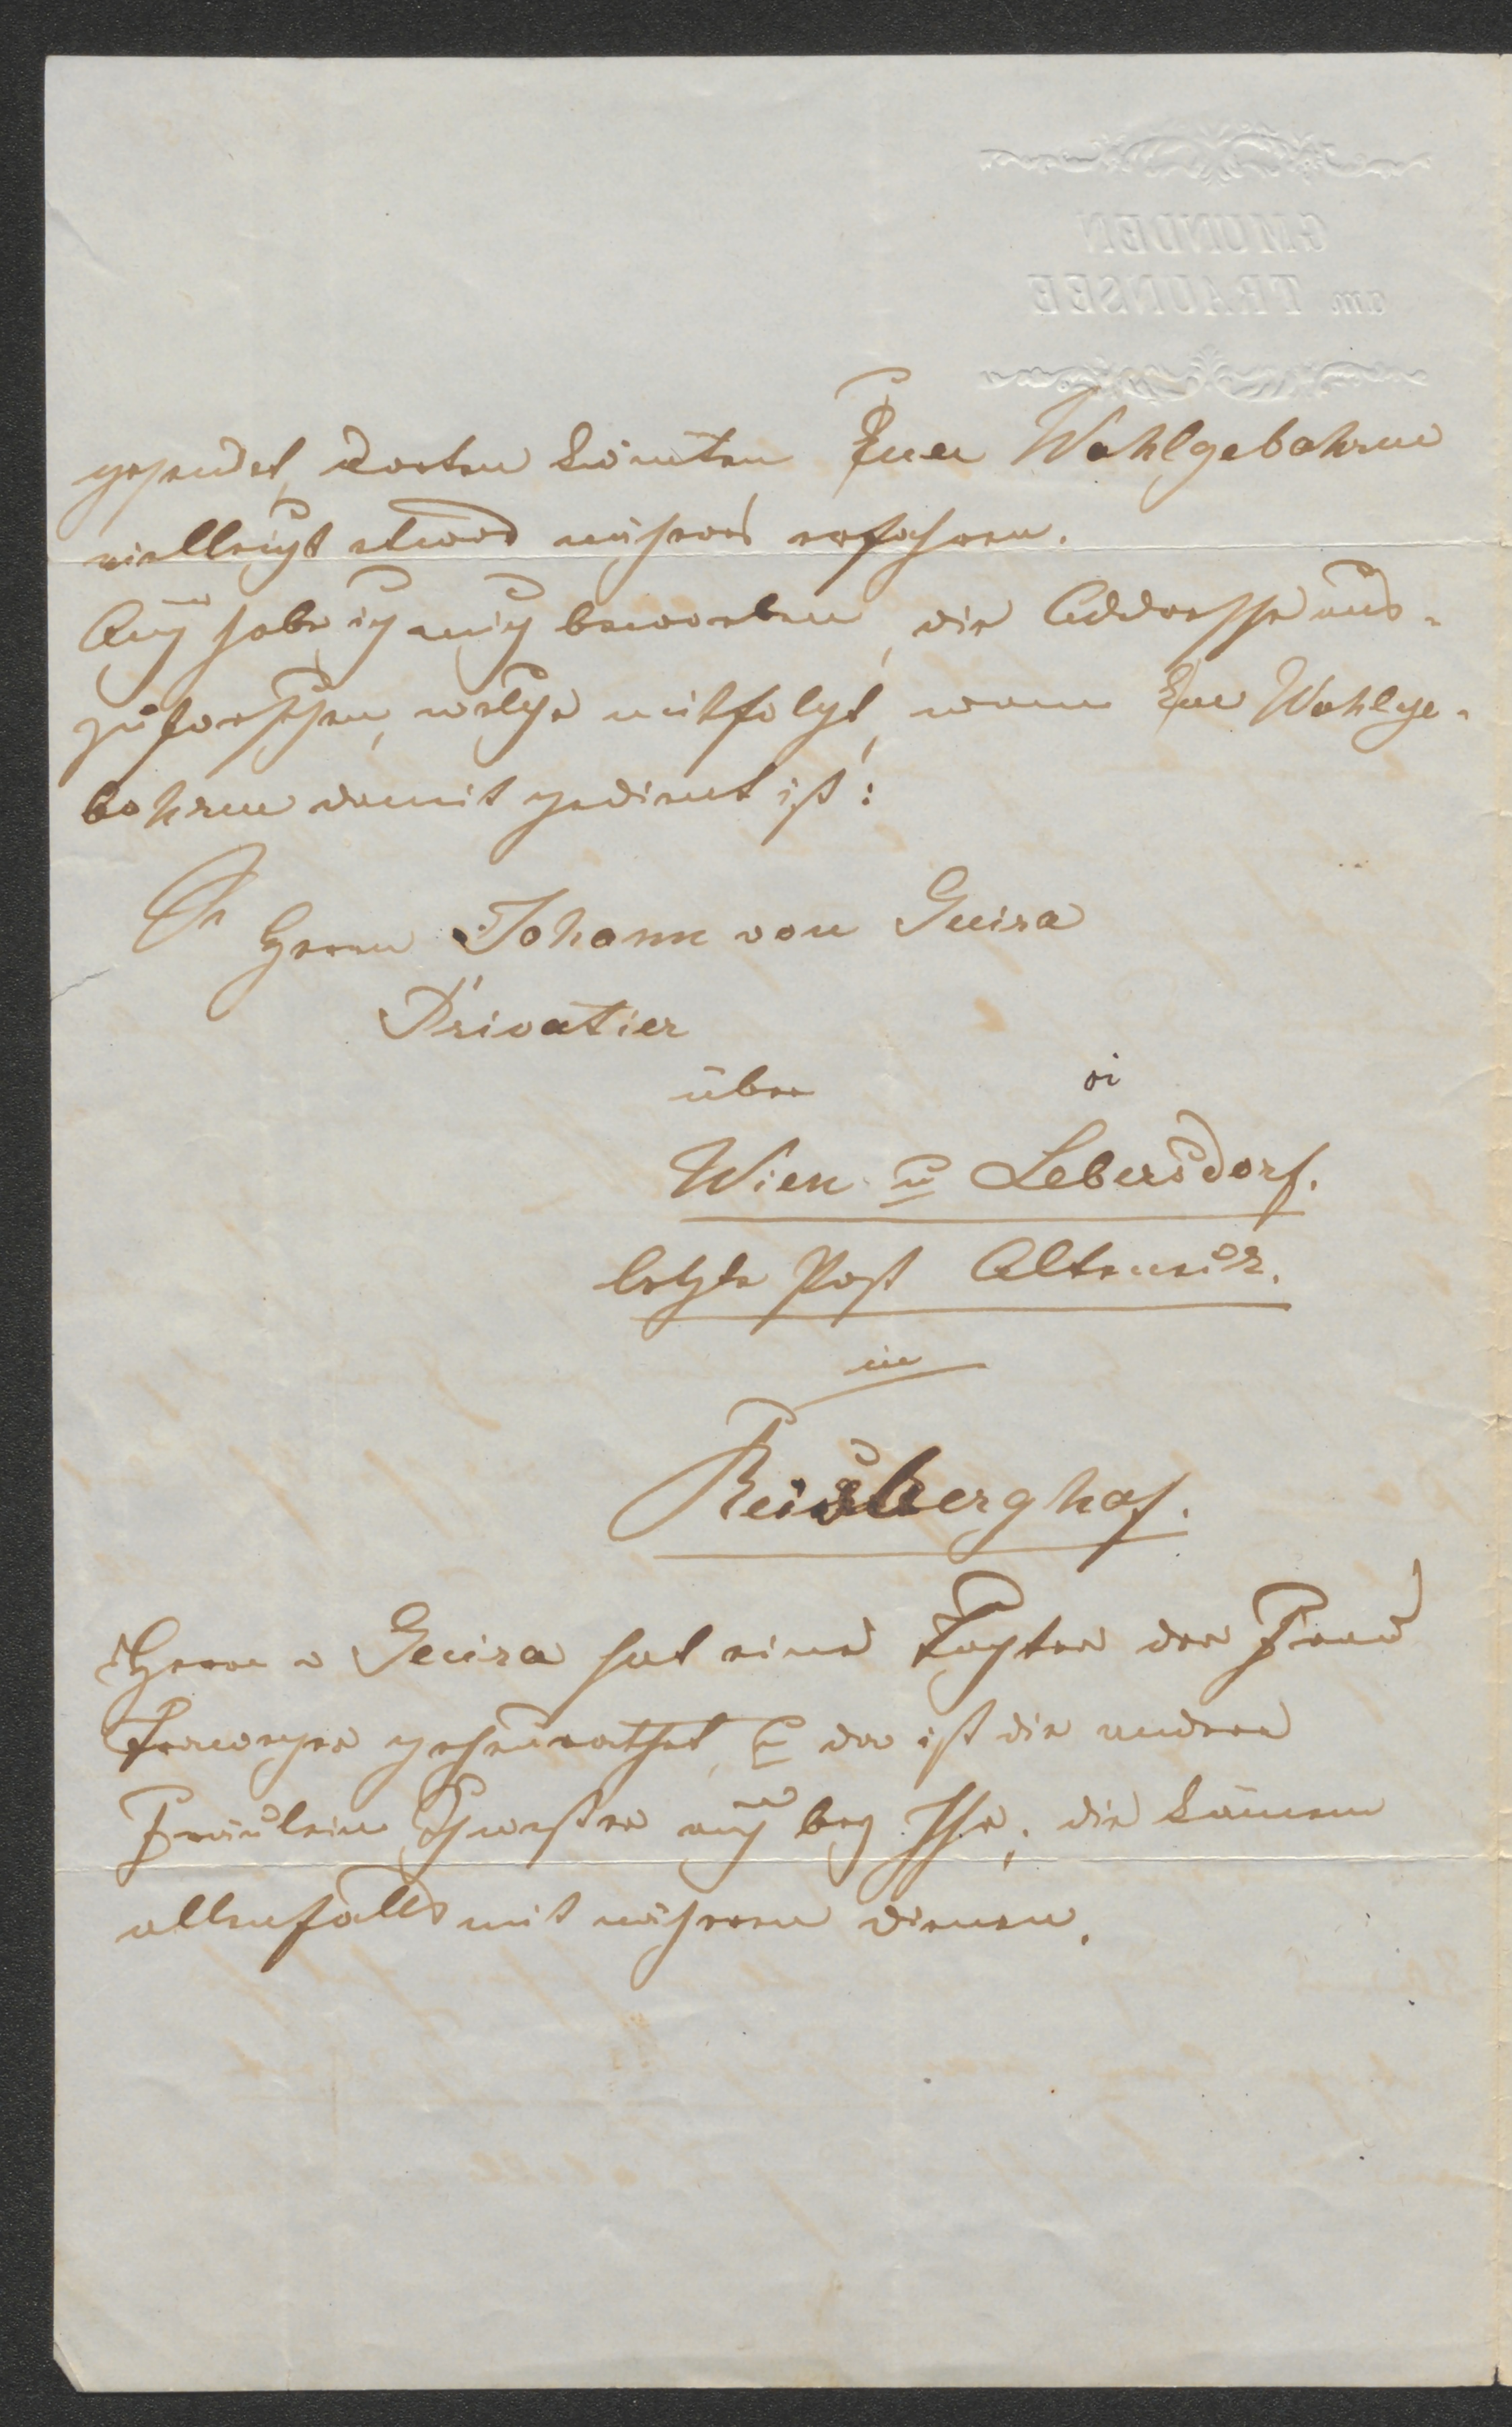 GMUNDEN
am TRAUNSEE
gesendet, dorten könnten Euer Wohlgebohren
vielleicht etwas näheres erfahren.
Auch habe ich mich beworben, die Addresse aus-
zuforschen, welche mitfolgt, wann Euer Wohlge-
bohren damit gedient ist:
An Herrn Johann von
Privatier
über
Wien u Lebersdorf.
ei
letzte Post
in
Reisberghof.
Herr v hat eine Tochter der Frau
geheurathet, u da ist die andere
Fräulein Schwester auch bey Ihr, die können
allenfalls mit näheren dienen.